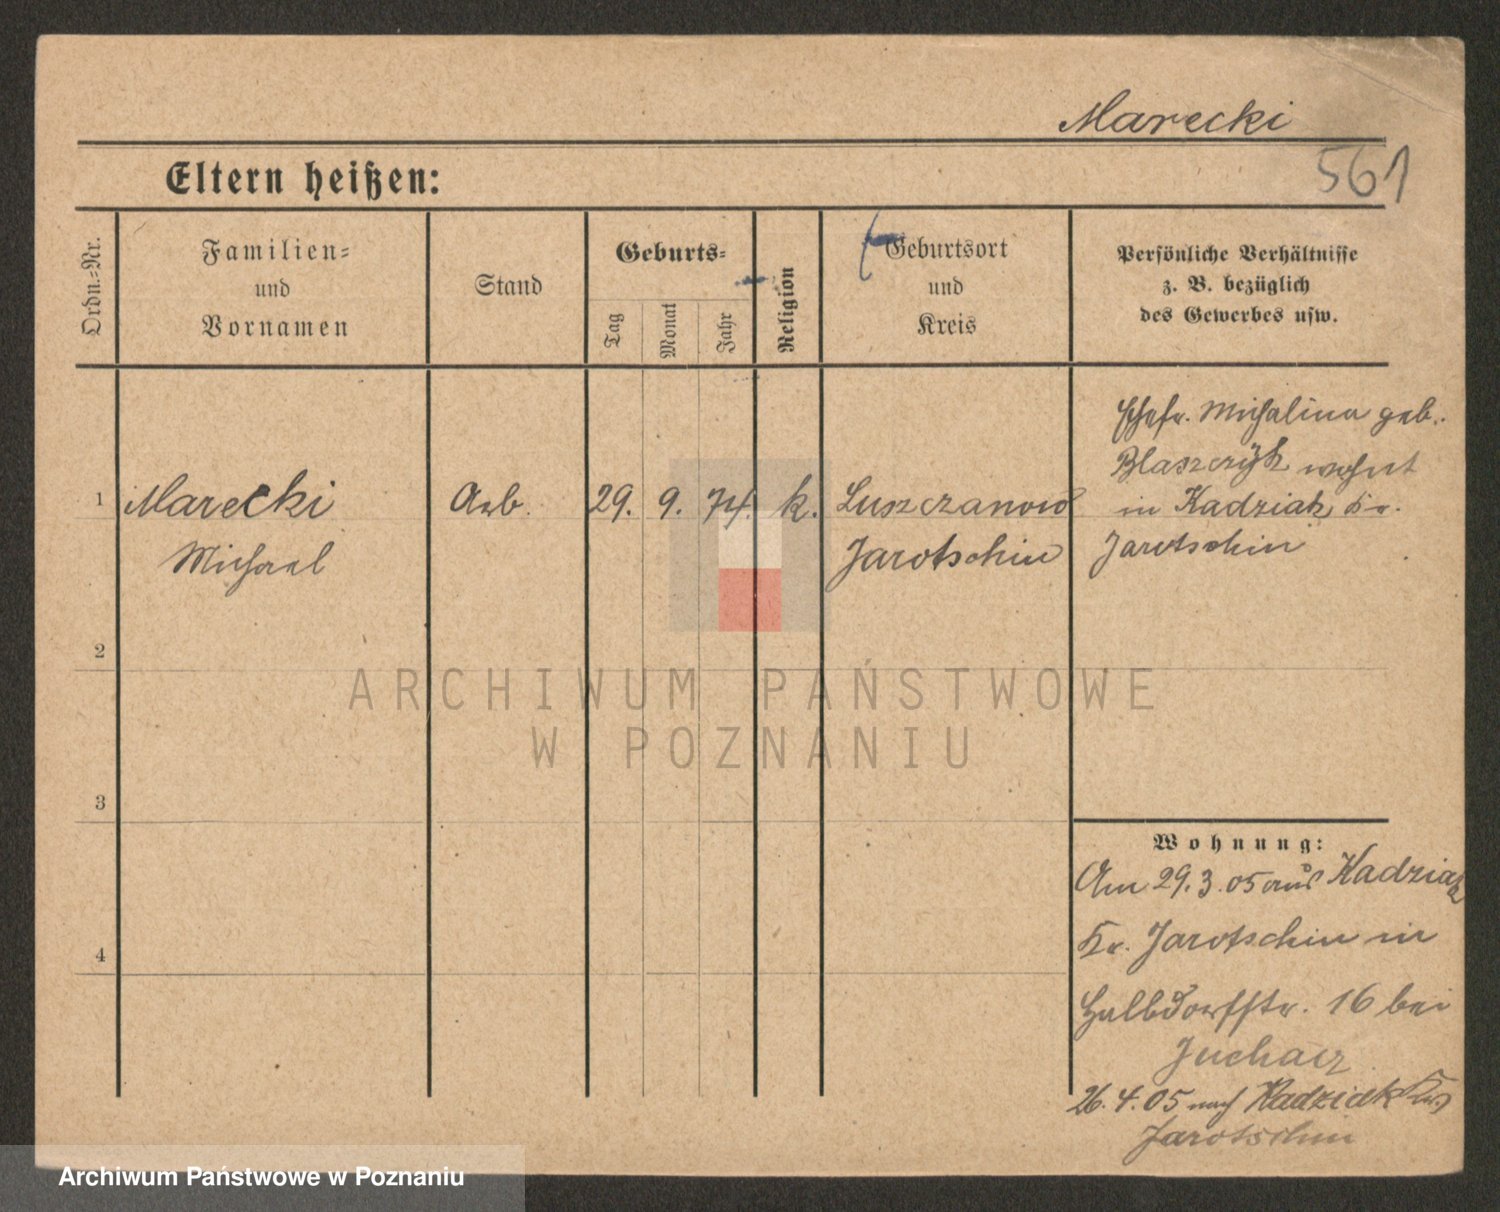 Marecki
561
Eltern heißen:
Ordn.-Nr.
Familien-
und
Vornamen
Stand
Geburts-
Tag
Monat
Jahr
Religion
Geburtsort
und
Kreis
Persönliche Verhältnisse
z. B. bezüglich
des Gewerbes usw.
1
Marecki
Arb.
29. 9. 74.
k.
Luszczanow
Michael
Jarotschin
Ehefr. Michalina geb.
Blaszczyk wohnt
in Kadziak Kr.
Jarotschin
2
3
4
Wohnung:
Am 29.3.05 aus Kadziak
Kr. Jarotschin in
Halbdorfstr. 16 bei
Juchacz
26.4.05 nach Kadziak Kr.
Jarotschin
ARCHIWUM PAŃSTWOWE
W POZNANIU
Archiwum Państwowe w Poznaniu